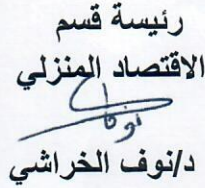 رئيسة قسم
الاقتصاد المنزلي
د/نوف الخراشي